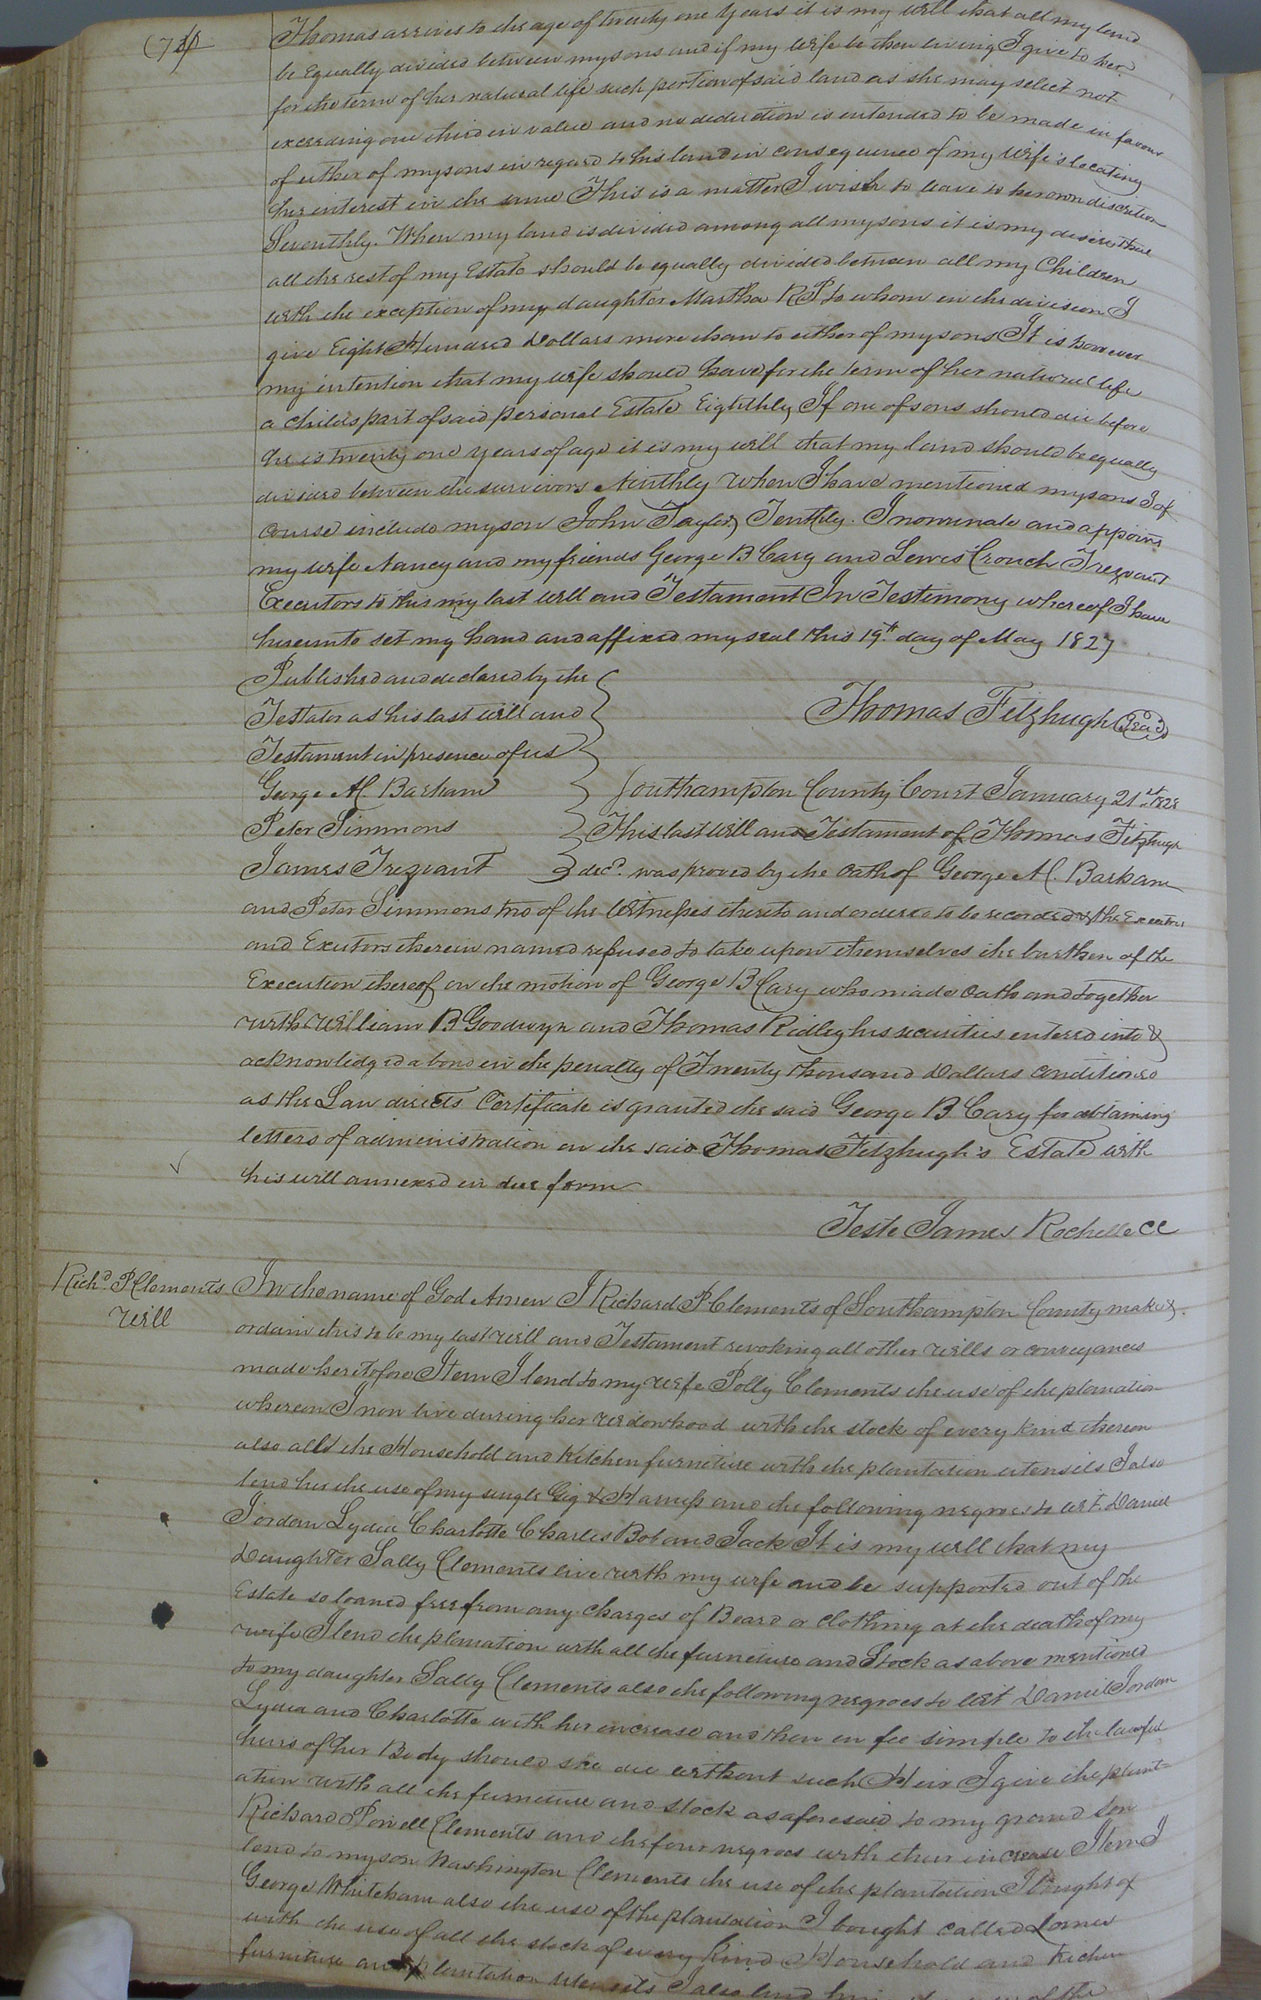 Thomas arrives to the age of twenty one years it is my will that all my land
be Equally divided between my sons and if my wife be then living I give to her
for the term of her natural life such portion of said land as she may select not
exceeding one third in value and no deduction is intended to be made in favour
of either of my sons in regard to his land in consequence of my wife's locating
her interest in the same This is a matter I wish to leave to her own discretion
Seventhly. When my land is divided among all my sons it is my desire that
all the rest of my Estate should be equally divided between all my Children
with the exception of my daughter Martha R P to whom in the division I
give Eight Hundred Dollars more than to either of my sons It is however
my intention that my wife should have for the term of her natural life
a child's part of said personal Estate Eighthly If one of sons should die before
he is twenty one years of age it is my will that my land should be equally
divided between the survivors Ninthly When I have mentioned my sons I of
course include my son John Tayler Tenthly. I nominate and appoint
my wife Nancy and my friends George B Cary and Lewis Crouch Trezvant
Executors to this my last will and Testament In Testimony whereof I have
hereunto set my hand and affixed my seal this 19th day of May 1827
Published and declared by the
Testator as his last will and
Thomas Fitzhugh (Seal)
Testament in presence of us
George M. Barham
Southampton County Court January 21st 1828
Peter Simmons
This last will and Testament of Thomas Fitzhugh
James Trezvant
decd. was proved by the oath of George M. Barham
and Peter Simmons two of the Witnesses thereto and ordered to be recorded & the Executrix
and Exutors therein named refused to take upon themselves the burthen of the
Execution thereof on the motion of George B Cary who made oath and together
with William B Goodwyn and Thomas Ridley his securities entered into &
acknowledged a bond in the penalty of Twenty thousand Dollars conditioned
as the Law directs Certificate is granted the said George B. Cary for obtaining
letters of administration on the said Thomas Fitzhugh's Estate with
his will annexed in due form
Teste James Rochelle CC
Richd. P Clements
Will
In the name of God Amen I Richard P Clements of Southampton County make &
ordain this to be my last will and Testament revoking all other wills or conveyances
made heretofore Item I lend to my wife Polly Clements the use of the plantation
whereon I now live during her widowhood with the stock of every kind thereon
also all the Household and Kitchen furniture with the plantation utensils I also
lend her the use of my single Gig & Harness and the following negroes to wit Daniel
Jordan Lydia Charlotte Charles Bob and Jack It is my will that my
Daughter Sally Clements live with my wife and be supported out of the
Estate so loaned free from any charges of Board or clothing at the death of my
wife I lend the plantation with all the furniture and Stock as above mentioned
to my daughter Sally Clements also the following negroes to wit Daniel Jordan
Lydia and Charlotte with her increase and then in fee simple to the lawful
heirs of her Body should she die without such Heir I give the plant-
ation with all the furniture and stock as aforesaid to my grand son
Richard Powell Clements and the four negroes with their increase Item I
lend to my son Washington Clements the use of the plantation I bought of
George Whitehare also the use of the plantation I bought called Lomes
with the use of all the stock of every kind Household and Kitchen
furniture and plantation utensils I also lend him of the